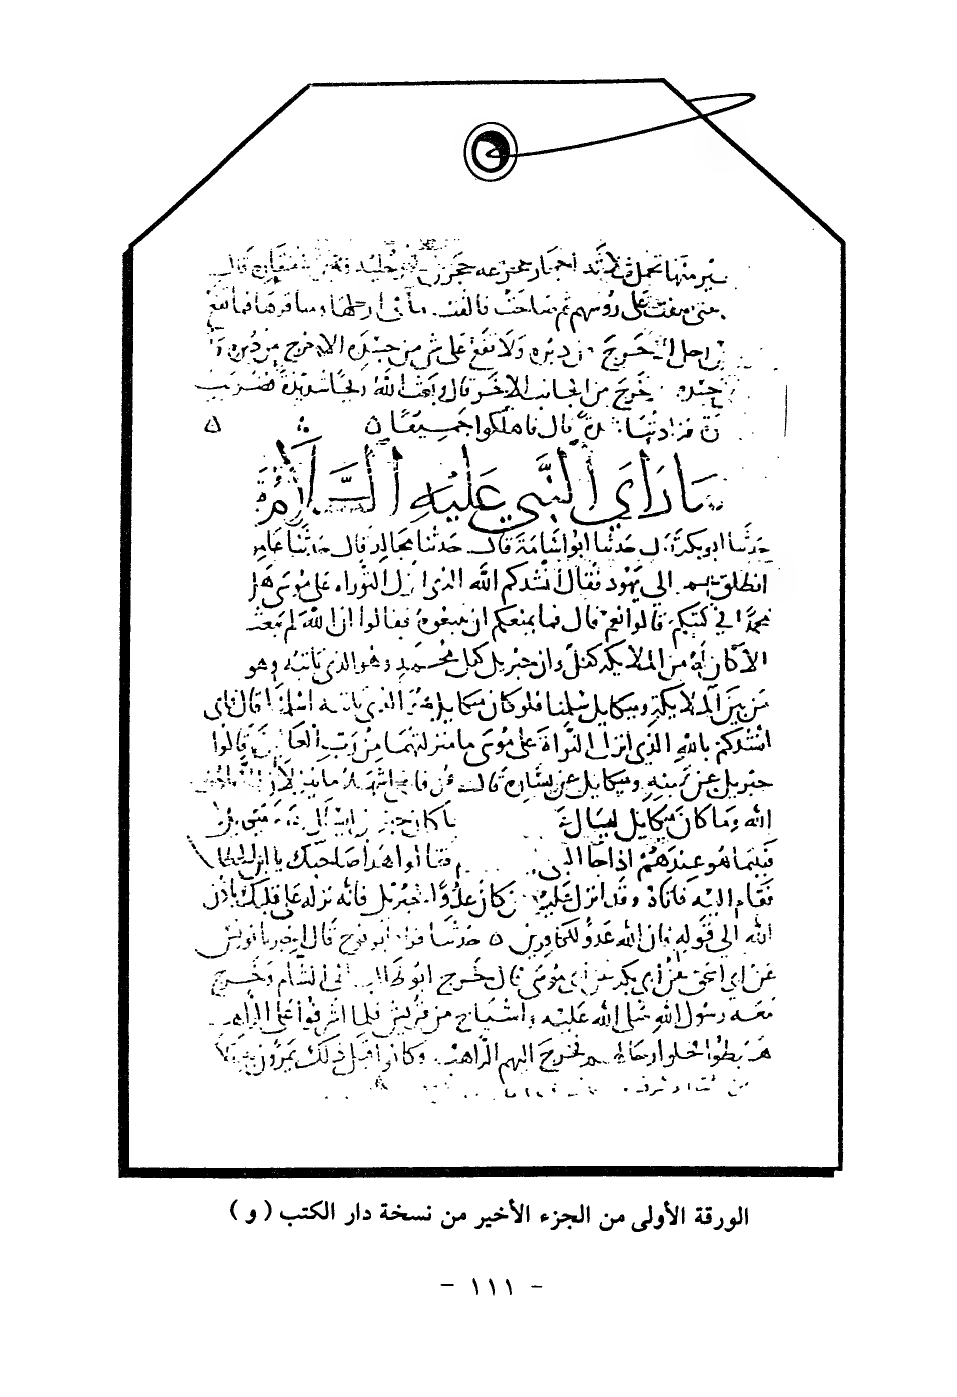 طير منها تحمل ثلاثة احجار مجزعه حجرين في رجليه قال
حتى صفت على روسهم ثم صاحت فالقت ما في ارجلها ومناقيرها فما يقع
الا خرج من دبره ولا يقع على شي من جسده الا خرج من
خرج من الجانب الاخر قال وبعث الله ريحا شديدة فضربت
فزادتها شدة قال فاهلكوا جميعا ٥ ٥
ما راى النبي عليه السلام
حدثنا ابو بكر قال حدثنا ابو اسامة قال حدثنا مجالد قال حدثنا عامر
انطلق الى يهود فقال انشدكم الله الذي انزل التوراه على موسى هل
محمدا في كتبكم قالوا نعم قال فما يمنعكم ان تتبعوه فقالوا ان الله لم يبعث
الا كان له من الملايكه كفل وان جبريل كفل محمد وهو الذي ياتيه وهو
من بين الملايكة وميكايل سلمنا فلو كان ميكايل هو الذي ياتيه اسلمنا قال فاني
انشدكم بالله الذي انزل التوراة على موسى ما منزلتهما من رب العالمين قالوا
جبريل عن يمينه وميكايل عن يساره قال
الله وما كان ميكايل
فبينما هو عندهم اذ جا النبي فقالوا هذا صاحبك يا ابن الخطاب
فقام اليه فاتاه وقد انزل عليه من كان عدوا لجبريل فانه نزله على قلبك باذن
الله الى قوله فان الله عدو للكافرين ٥ حدثنا قراد ابو نوح قال اخبرنا يونس
عن ابي اسحق عن ابي بكر عن ابي موسى قال خرج ابو طالب الى الشام وخرج
معه رسول الله صلى الله عليه واشياخ من قريش فلما اشرفوا على الراهب
هبطوا فحلوا رحالهم فخرج اليهم الراهب وكانوا قبل ذلك يمرون به فلا
الورقة الأولى من الجزء الأخير من نسخة دار الكتب ( و )
- ١١١ -